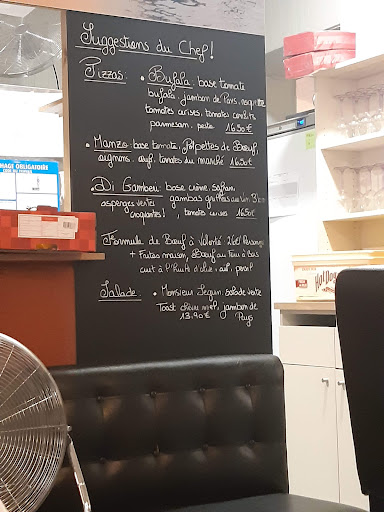 Suggestions du Chef!
Pizzas: • Bufala: base tomate
bufala, jambon de Paris, roquette
tomates cerises, tomates confites
parmesan, pesto 16.50€
• Manzo: base tomate, Polpettes de Bœuf,
oignons, œuf, tomates du marché 16.50€
• Di Gamberi: base crème safran,
asperges vertes gambas grillées au vin B
croquantes!, tomates cerises 16.50€
Formule de Bœuf à Volonté 26€ / Personne
+ Frites maison, Bœuf au Feu de Bois
cuit à l'Huile d'olive, ail, persil
Salade: • Monsieur Seguin: salade verte
Toast chèvre miel, jambon de
13.90€ Pays
HAGE OBLIGATOIRE